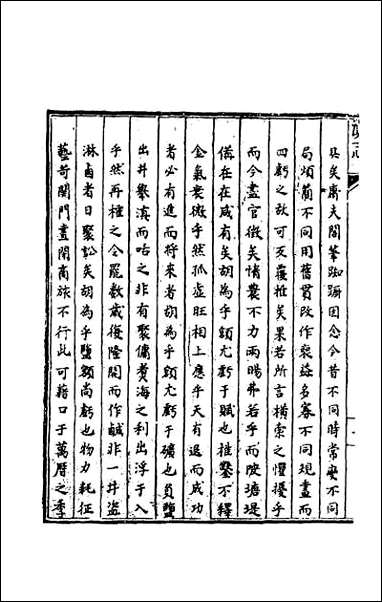 具矣膚夫閣筆踟蹰因念今昔不同時常變不同
局煩簡不同用舊貫改作裒益多寡不同規盡而
四虧之故可反覆推矣果若所言橫索之懼擾乎
而今盡官徵矣惰農不力雨暘弗若乎而陂塘堤
備在在咸有矣胡為乎額尤虧于賦也椎鑿不釋
金氣衰微乎然孤虛旺相上應乎天有退而成功
者必有進而將來者胡為乎額尤虧于礦也員鹽
出井擧滇而咕之非有聚傭煑海之利出浮于入
乎然再權之令罷數歲復隆開而作鹹非一井盜
淋鹵者日聚訟矣胡為乎鹽額尚虧也物力耗征
藝苛関門晝閉商旅不行此可藉口于萬曆之季